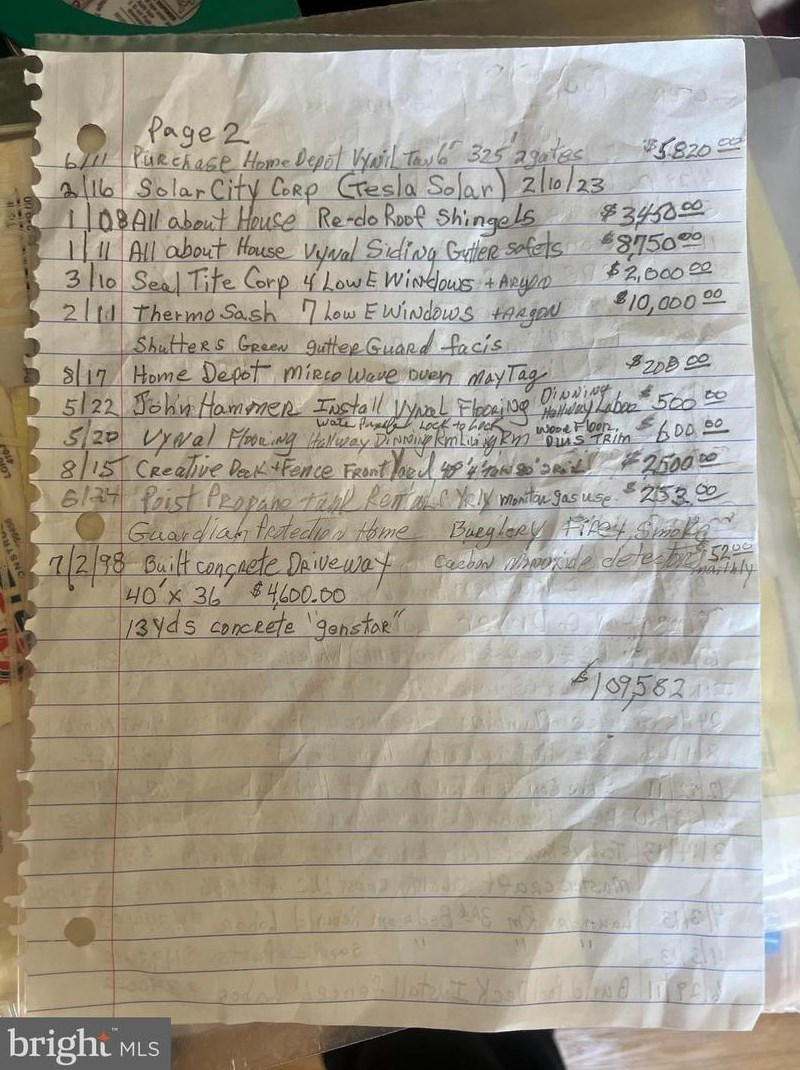 Page 2
6/11 Purchase Home Depot Vynil Tan 6' 325' 2 gates $5820 00
2/16 Solar City Corp (Tesla Solar) 2/10/23
1/08 All about House Re-do Roof Shingols $3450 00
1/11 All about House Vynal Siding Gutter sofets $8750 00
3/10 Seal Tite Corp 4 Low E Windows + Argon $2,000 00
2/11 Thermo Sash 7 Low E Windows + Argon $10,000 00
Shutters Green gutter Guard facis
8/17 Home Depot mirco wave oven may Tag $208 00
5/22 John Hammer Install Vynal Flooring Dinning Hallway Labor $500 00
Water Lock to Lock
5/20 Vynal Flooring Hallway Dinning Rm Living Rm Wood Floor Plus Trim $600 00
8/15 Creative Deck + Fence Front Yard $2500 00
6/24 Poist Propane tank Rentals Yrly monitor gas use $253.00
Guardian Protection Home Burglery Fire + Smoke
7/2/98 Built concrete Driveway Carbon monoxide detectors $52 00 monthly
40' x 36' $4,600.00
13 yds concrete "genstar"
$109,582
bright MLS